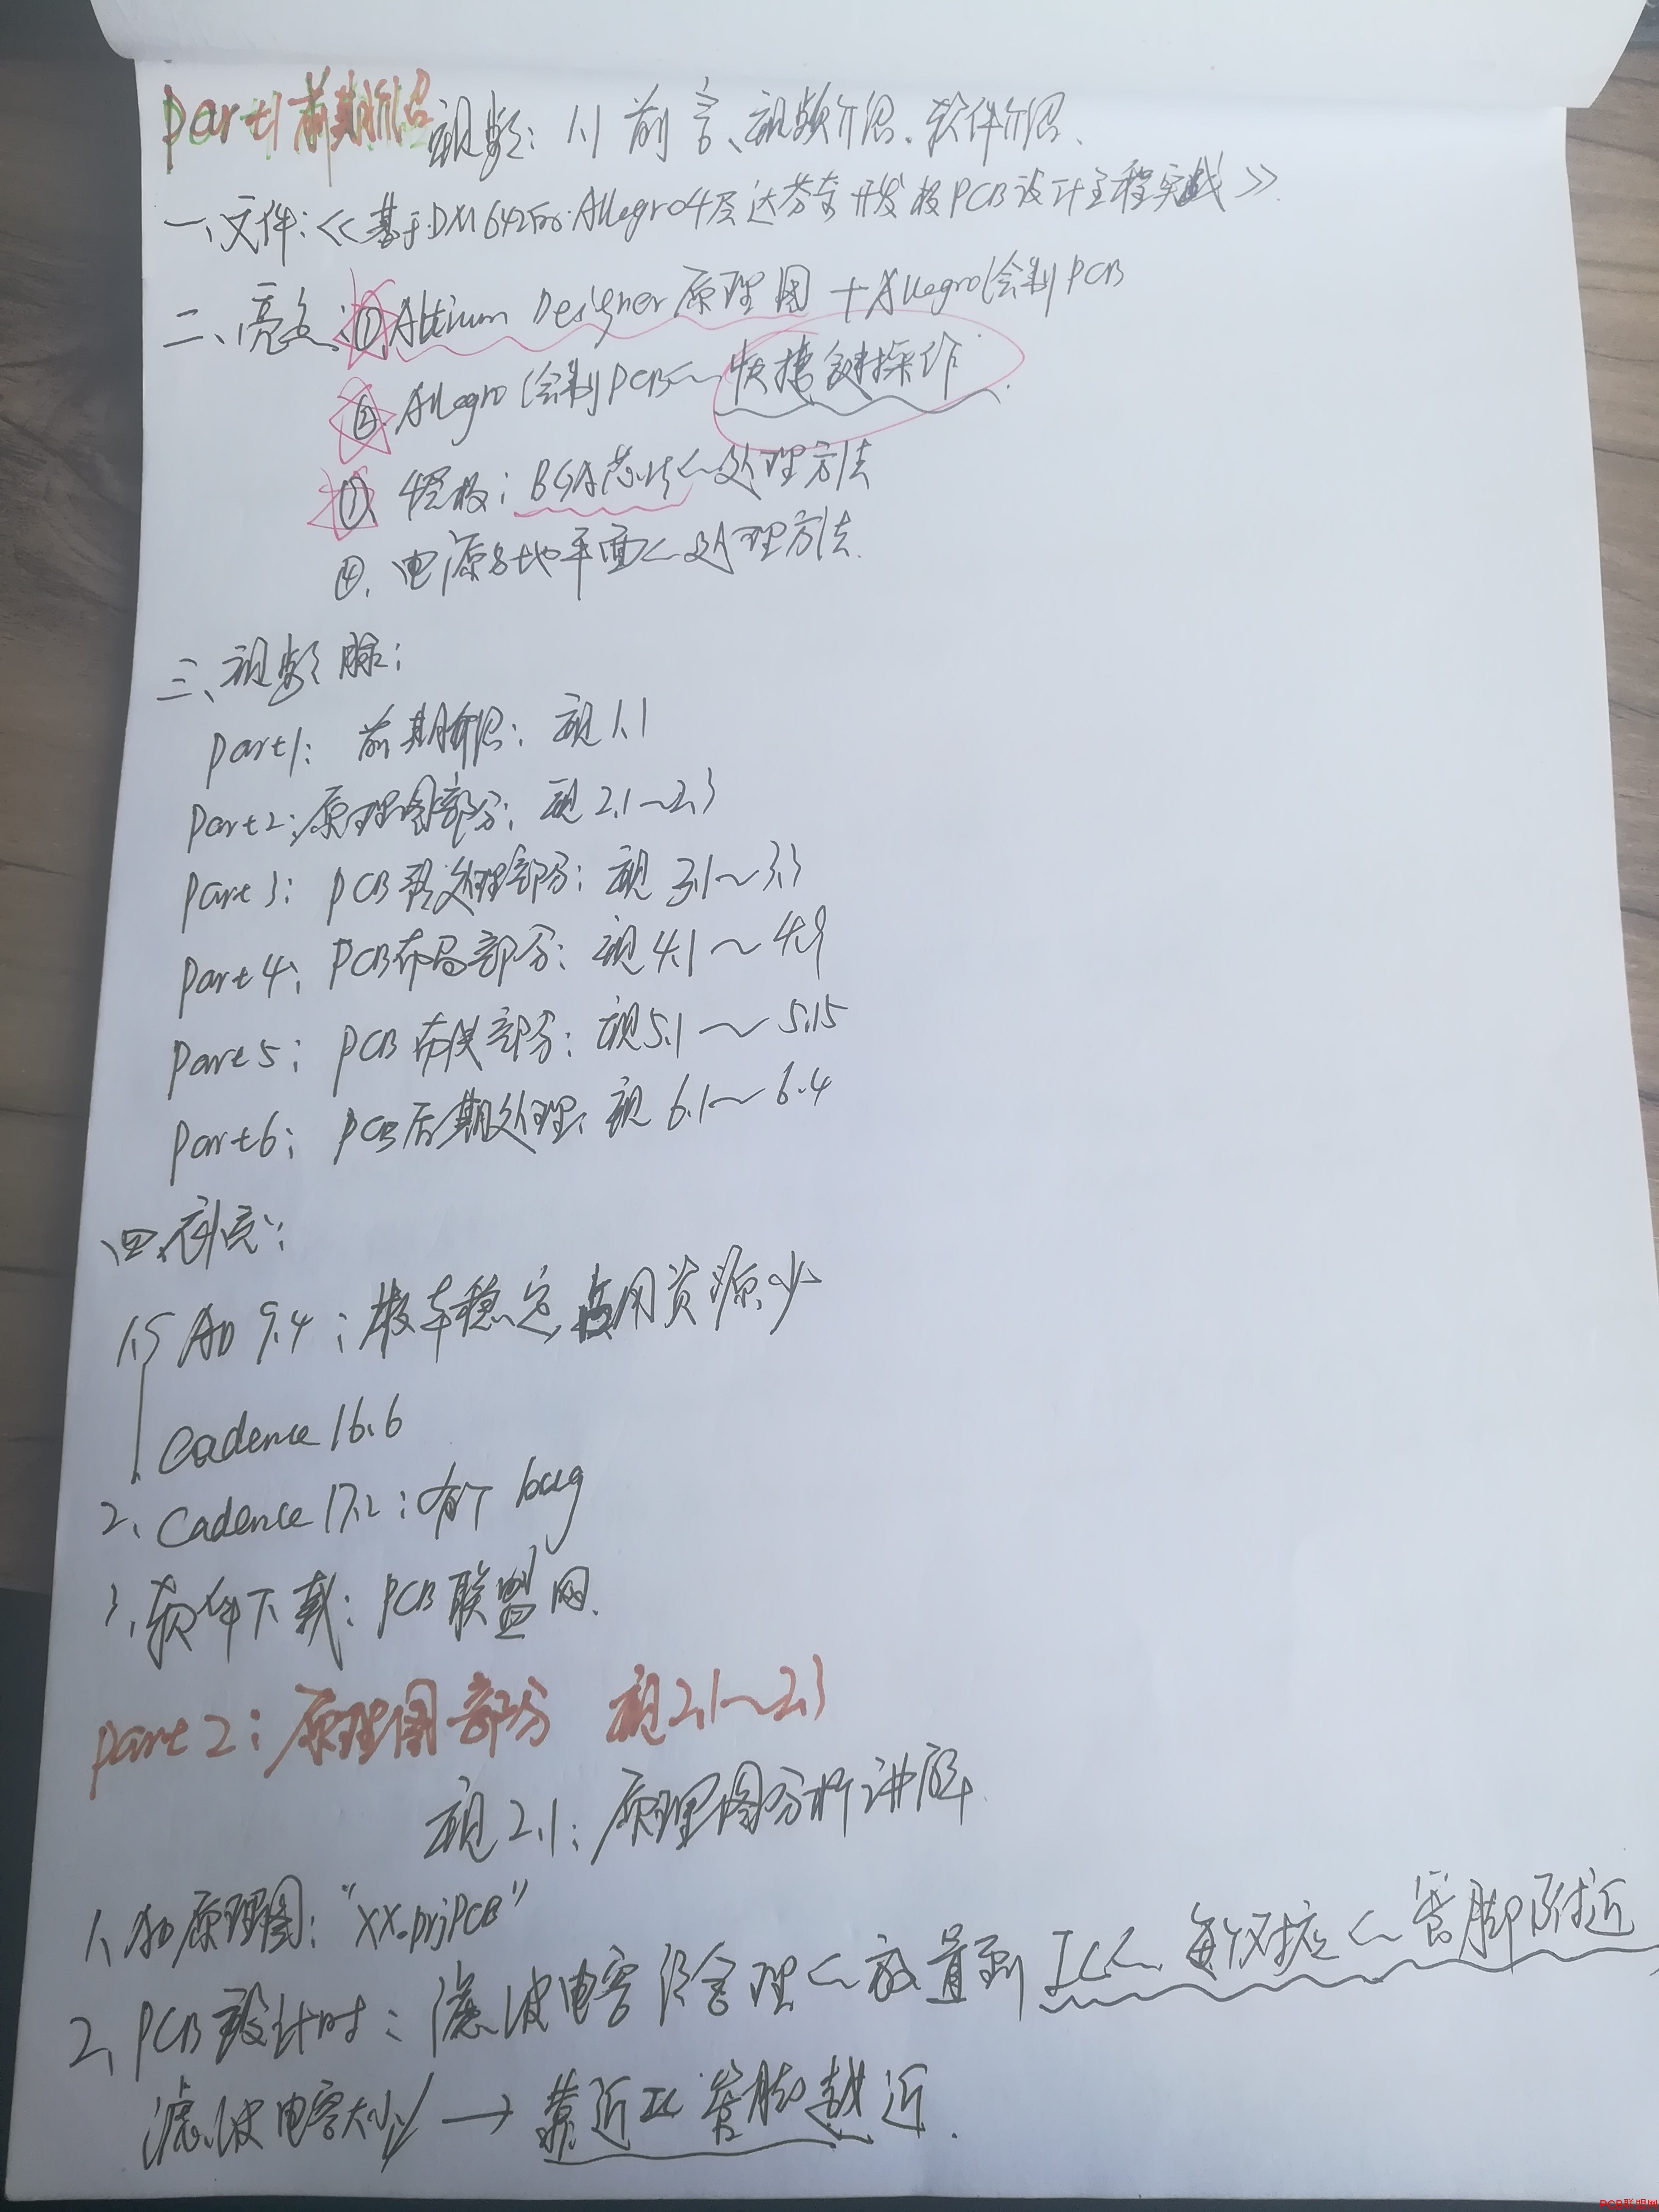 Part1 前期介绍 视频: 1.1 前言、视频介绍、软件介绍、
一、文件:《基于DM642 For Allegro 4层达芬奇开发板PCB设计全程实战》
二、亮点: ①.Altium Designer 原理图 + Allegro绘制PCB
②. Allegro绘制PCB 快捷键操作
③ 4层板: BGA芯片 处理方法
④. 电源与地平面 处理方法.
三、视频 :
Part1: 前期介绍: 视1.1
Part2: 原理图部分: 视2.1~2.3
Part3: PCB预处理部分: 视3.1~3.3
Part4: PCB布局部分: 视4.1~4.9
Part5: PCB布线部分: 视5.1~5.15
Part6: PCB后期处理: 视6.1~6.4
四、
1. AD 9.4: 稳定,占用资源少
Cadence 16.6
2、Cadence 17.2: 有个bug
3、软件下载: PCB联盟网.
Part2: 原理图部分 视2.1~2.3
视2.1: 原理图分析讲解.
1、AD原理图: “XX.prjPCB”
2、PCB设计时: 滤波电容 合理 放置到IC 每个对应 管脚附近
滤波电容 → 靠近IC管脚越近.
PCB联盟网